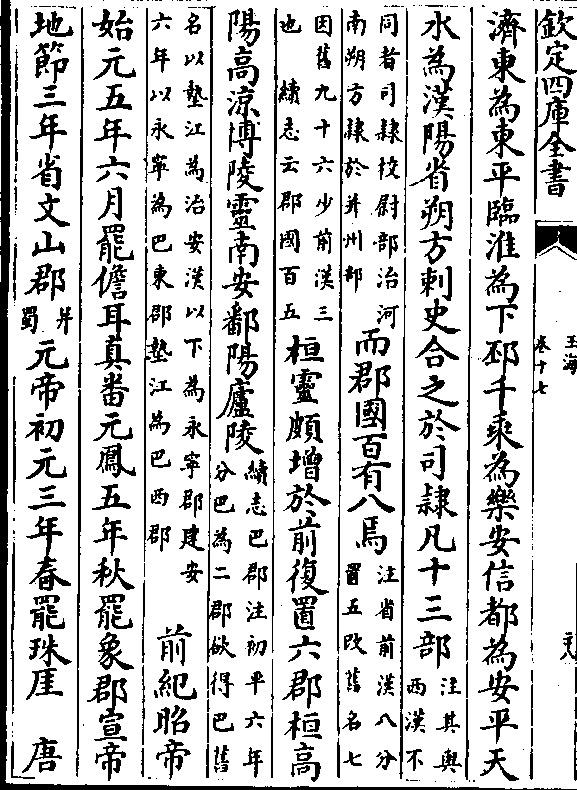 欽定四庫全書
玉海
卷十七
濟東為東平臨淮為下邳千乘為樂安信都為安平天
水為漢陽省朔方刺史合之於司隸凡十三部
注其與
西漢不
同者司隸校尉部治河
南朔方隸於并州部
而郡國百有八焉
注省前漢八分
置五改舊名七
因舊九十六少前漢三
也　續志云郡國百五
桓靈頗增於前復置六郡桓高
陽高涼博陵靈南安鄱陽廬陵
續志巴郡注初平六年
分巴為二郡欲得巴舊
名以墊江為治安漢以下為永寧郡建安
六年以永寧為巴東郡墊江為巴西郡
前紀昭帝
始元五年六月罷儋耳真番元鳳五年秋罷象郡宣帝
地節三年省文山郡
并
蜀
元帝初元三年春罷珠厓　唐